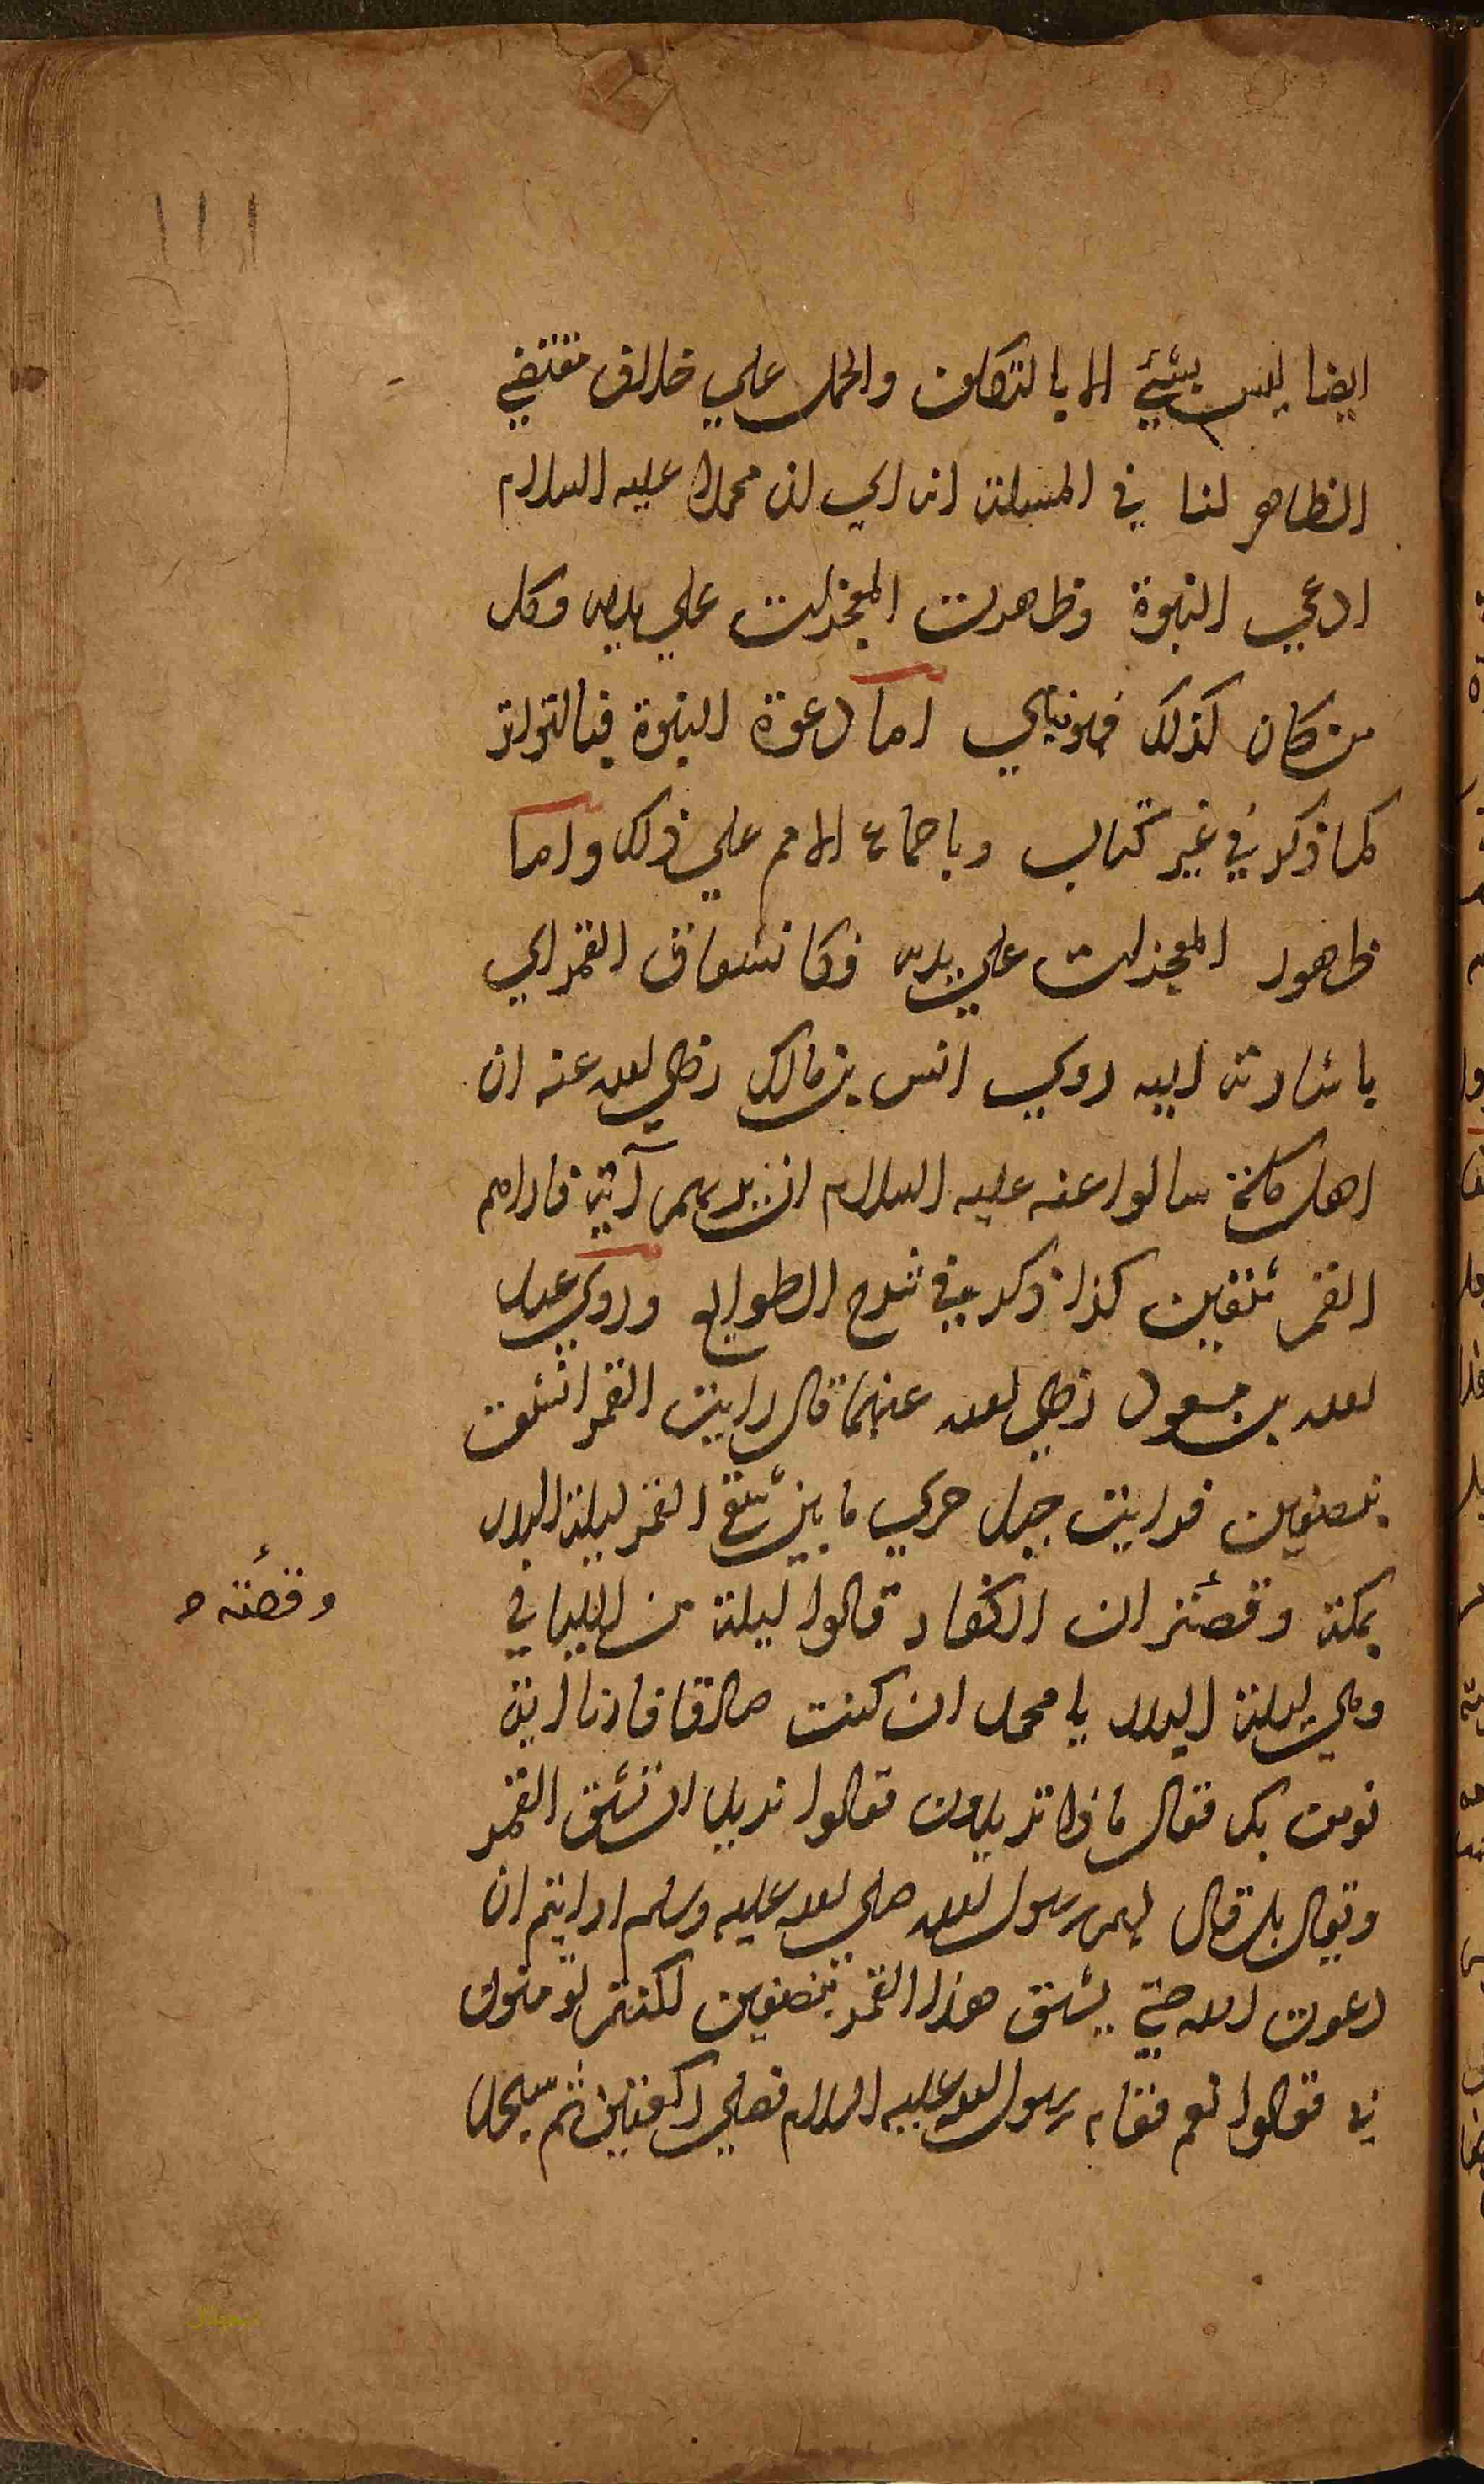 ١١١
ايضا ليس بشئ الا بالتكلف والحمل علي خلاف مقتضي
الظاهر لنا في المسئلة انه اي ان محمدا عليه السلام
ادعي النبوة وظاهرت المعجزات علي يديه وكل
من كان كذلك فهو نبي اما دعوة النبوة فبالتواتر
كما ذكر في غير كتاب وباجماع الامم علي ذلك واما
ظهور المعجزات علي يديه فكانشقاق القمر اي
باشارته اليه روي انس بن مالك رضي الله عنه ان
اهل مكة سالوا عنه عليه السلام ان يريهم آية فاراهم
القمر شقين كذا ذكر في شرح الطوالع وروي عبد
الله بن مسعود رضي الله عنهما قال رايت القمر انشقت
بنصفين فرايت جبل حري ما بين شقي القمر ليلة البدر
بمكة وقصته ان الكفار قالوا ليلة من الليالي
وقصته صح
وهي ليلة البدر يا محمد ان كنت صادقا فارنا اية
نومن بك فقال ماذا تريدون فقالوا نريد ان تشق القمر
ويقال بل قال لهم رسول الله صلي الله عليه وسلم ارايتم ان
دعوت الله حتي يشق هذا القمر بنصفين لكنتم تومنون
بي فقالوا نعم فقام رسول الله عليه السلام فصلي ركعتين ثم سجد